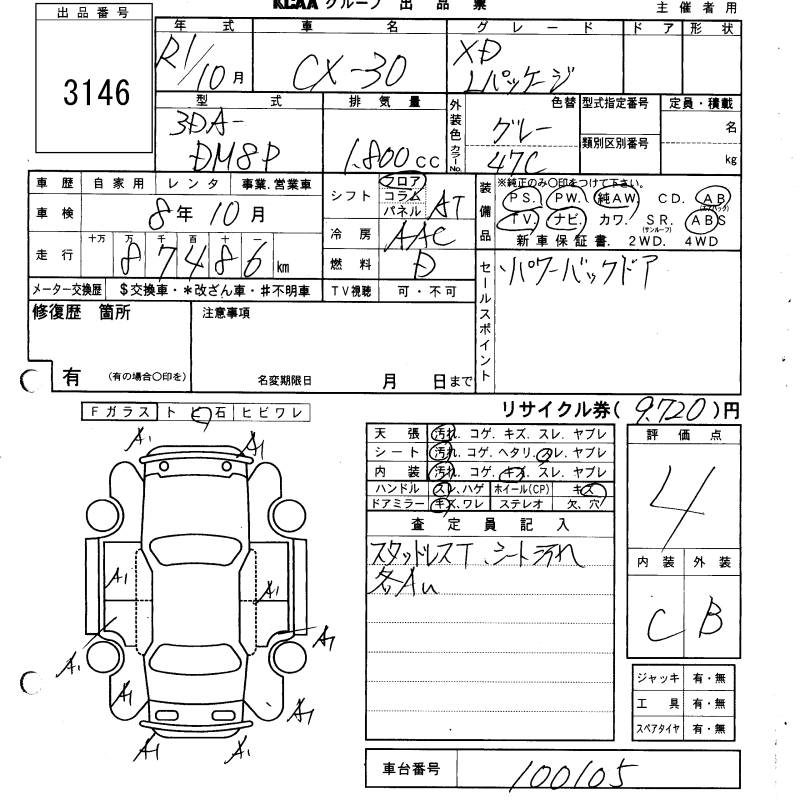 KCAA グループ 出品票
主催者用
出品番号
3146
年式 車名 グレード ドア 形状
R1/10月 CX-30 XD Lパッケージ
型式 排気量 外装色 カラーNo. 色替 型式指定番号 定員・積載
3DA-DM8P 1.800cc グレー 47C 類別区別番号 名 kg
車歴 自家用 レンタ 事業.営業車
車検 8年10月
走行 十万 万 千 百 十
87486km
メーター交換歴 $交換車・*改ざん車・#不明車
シフト フロア コラム パネル AT
冷房 AAC
燃料 D
TV視聴 可・不可
装備品 ※純正のみ〇印をつけて下さい。
PS. PW. 純AW. CD. AB(エアバッグ)
TV ナビ カワ. SR.(サンルーフ) ABS
新車保証書. 2WD. 4WD
セールスポイント パワーバックドア
修復歴 箇所
有 (有の場合〇印を)
注意事項
名変期限日 月 日まで
リサイクル券( 9.720 )円
Fガラス トビ石 ヒビワレ
天張 汚れ. コゲ. キズ. スレ. ヤブレ
シート 汚れ. コゲ. ヘタリ. スレ. ヤブレ
内装 汚れ. コゲ. キズ. スレ. ヤブレ
ハンドル スレ、ハゲ ホイール(CP) キズ
ドアミラー キズ、ワレ ステレオ 欠、穴
査定員記入
スタッドレスT、シート汚れ
各AU
評価点
4
内装 外装
C B
A1 A1
A1 A1
A1 A1
A1
A1 A1
ジャッキ 有・無
工具 有・無
スペアタイヤ 有・無
車台番号 100105